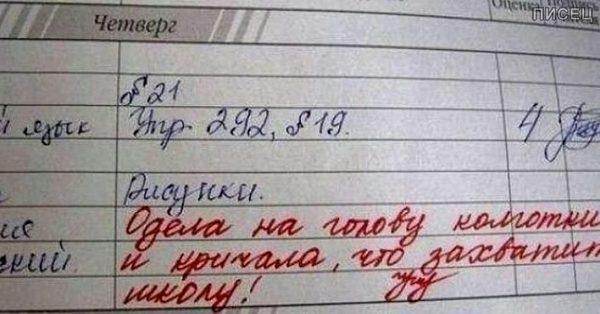 Оценка Подпись
ПИСЕЦ
Четверг
§ 21
язык Упр. 292, § 19. 4
Рисунки.
Одела на голову колготки
и кричала, что захватит
школу!